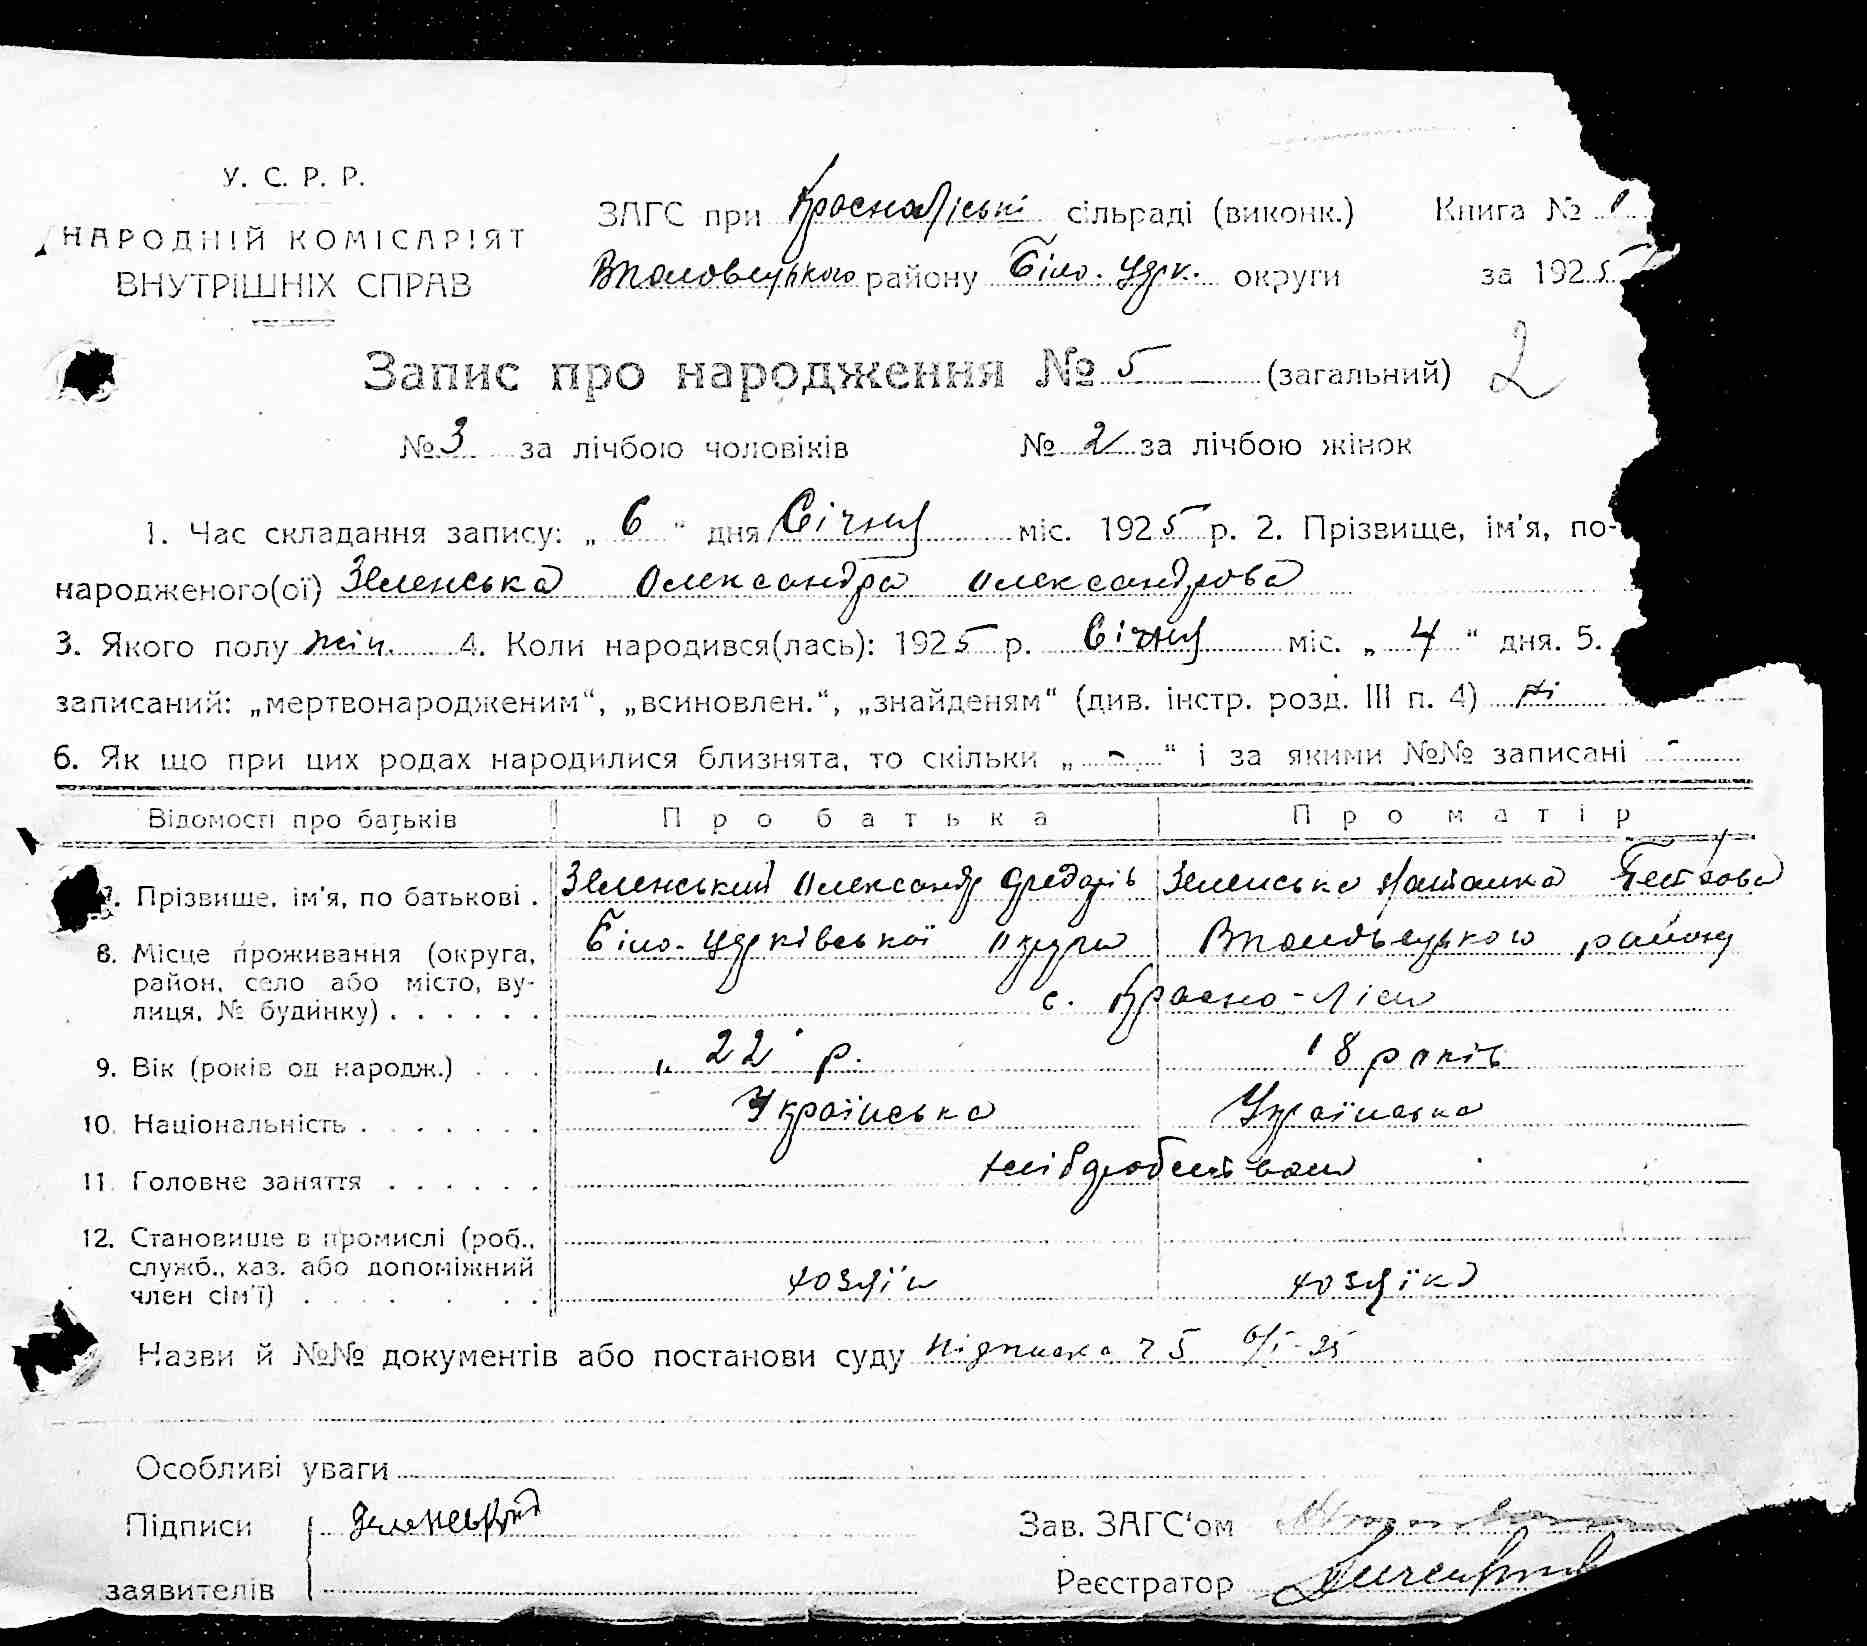 У. С. Р. Р.
НАРОДНІЙ КОМІСАРІЯТ
ВНУТРІШНІХ СПРАВ
ЗАГС при Красноліські сільраді (виконк.) Книга № 1
Вполовецького району Біло-Церк. округи за 1925
Запис про народження № 5 (загальний) 2
№ 3 за лічбою чоловіків № 2 за лічбою жінок
1. Час складання запису: „ 6 “ дня Січня міс. 1925 р. 2. Прізвище, ім'я, по-
народженого(ої) Зеленська Олександра Олександрова
3. Якого полу жін. 4. Коли народився(лась): 1925 р. Січня міс. „ 4 “ дня. 5.
записаний: „мертвонародженим“, „всиновлен.“, „знайденям“ (див. інстр. розд. III п. 4) ні
6. Як що при цих родах народилися близнята, то скільки „ - “ і за якими №№ записані -
Відомості про батьків Про батька Про матір
7. Прізвище, ім'я, по батькові . Зеленський Олександр Зеленська Наталка
8. Місце проживання (округа, Біло-Церківської округи Вполовецького району
район, село або місто, ву- с. Красно-Ліси
лиця, № будинку) . . . . . .
9. Вік (років од народж.) . . . 22 р. 18 років
10. Національність . . . . . . . Українська Українська
11. Головне заняття . . . . . . хліборобство
12. Становище в промислі (роб.,
служб., хаз. або допоміжний
член сім'ї) . . . . . . . хозяїн хозяїка
Назви й №№ документів або постанови суду Підписка ч 5 6/I-25
Особливі уваги
Підписи Зеленський Зав. ЗАГС'ом
заявителів Реєстратор